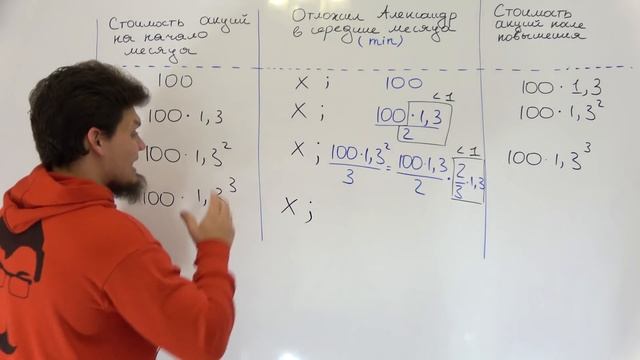 Стоимость акций
на начало
месяца
Отложил Александр
в середине месяца
(min)
Стоимость
акций поле
повышения
100
X ; 100
100 · 1,3
100 · 1,3
X ; 100 · 1,3 / 2 < 1
100 · 1,3²
100 · 1,3²
X ; 100·1,3² / 3 = 100·1,3 / 2 · 2/3 · 1,3 < 1
100 · 1,3³
100 · 1,3³
X ;